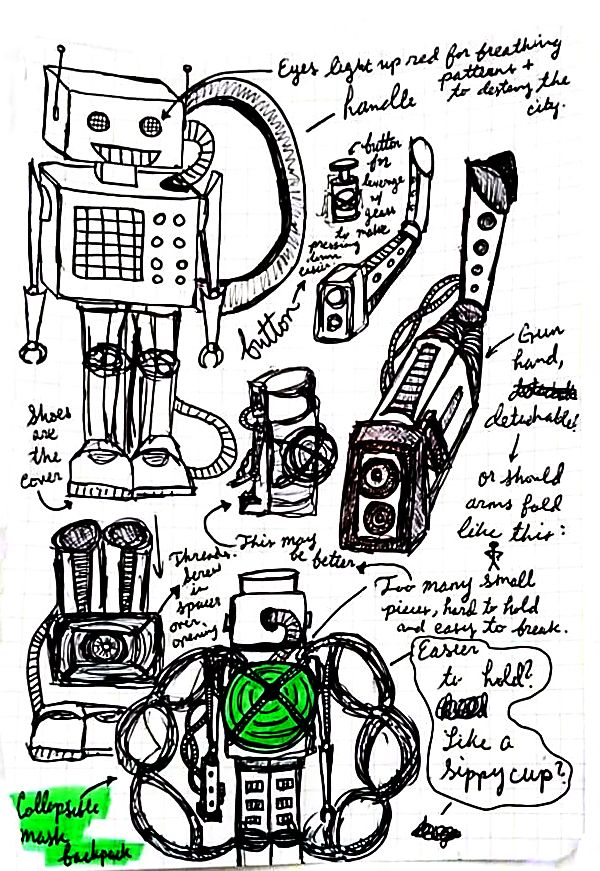 Eyes light up red for breathing
patterns +
to destroy the
city.
handle
button
for
leverage
w/
gears
to make
pressing
down
easier.
button
Gun
hand,
detachable?
or should
arms fold
like this:
Shoes
are
the
cover
This may
be better
Threads.
Screw
in
spacer
over
opening
Too many small
pieces, hard to hold
and easy to break.
Easier
to hold?
Like a
Sippy cup?
Collapsible
mask
backpack